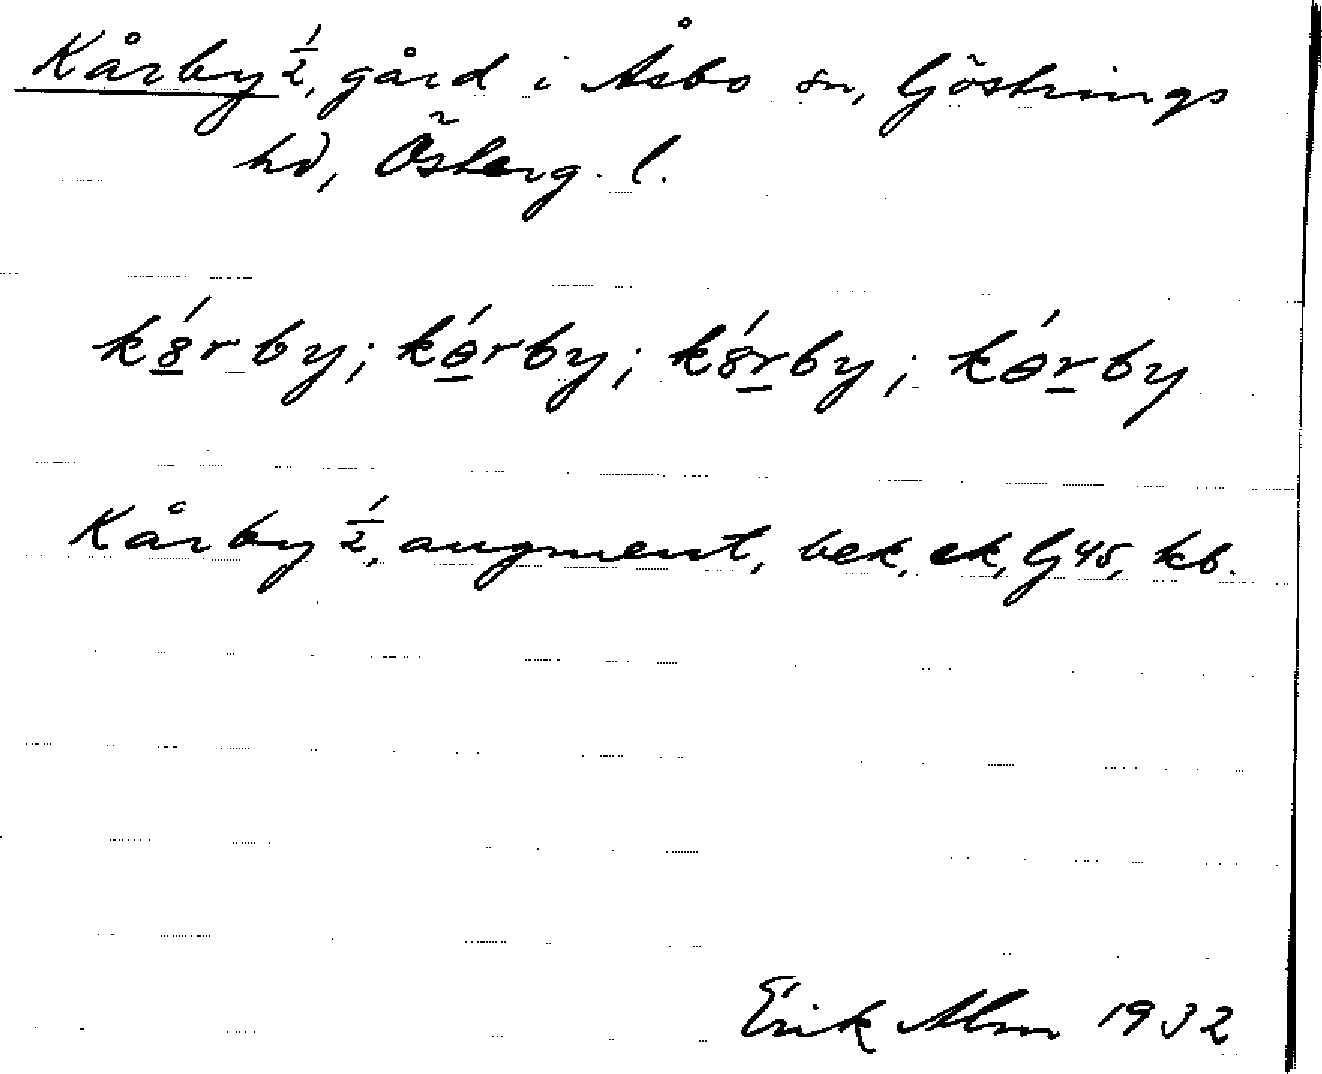 Kårby ½, gård i Åsbo sn, Göstrings
hd, Österg. l.
kȣ́rby; kǿrby; kȣ́rby; kǿrby
Kårby ½, augment, bek, ek, Gj 45, kb.
Erik Alm 1932